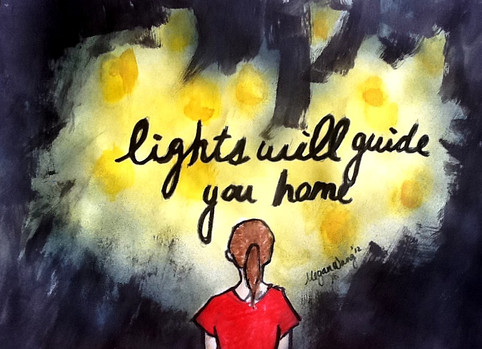 lights will guide
you home
Megan Wang '12